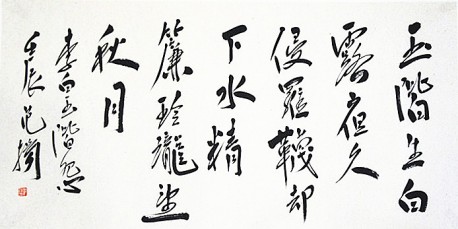 玉階生白
露夜久
侵羅韈却
下水精
簾玲瓏望
秋月
李白玉階怨
壬辰